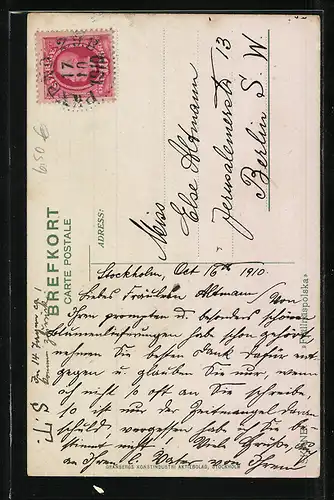 BREFKORT
CARTE POSTALE
ADRESS:
Miss
Else Altmann
Jerusalemerstr. 13
Berlin S. W.
Stockholm, Oct 16th 1910.
Liebes Fräulein Altmann! Von
Ihren prompten & besonders schönen
Blumenlieferungen hab schon gehört
nehmen Sie besten Dank dafür ent-
gegen u glauben Sie nur, wenn
ich nicht so oft an Sie schreibe,
so ist nur der Zeitmangel daran
schuld, vergessen hab ich Sie be-
stimmt nicht! Viele Grüße, auch
an Ihren l. Vater von Ihrem
In 14 Tagen ca!
komme zurück!
6,50 €
GRANBERGS KONSTINDUSTRI AKTIEBOLAG, STOCKHOLM
»Phillipspolska«